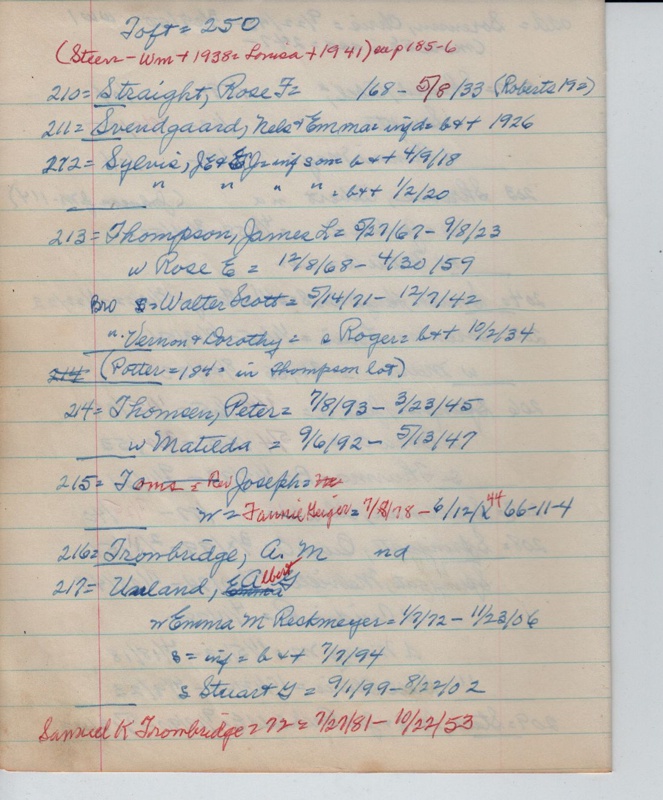 Toft = 250
(Steen - Wm + 1938 = Louisa + 1941) cap 185-6
210 = Straight, Rose F = /68 - 5/8/33 (Roberts 192)
211 = Svendgaard, Nels & Emma = inf d = b & + 1926
272 = Sylvis, J E & E J = inf son b & + 4/9/18
" " " " = b & + 1/2/20
213 = Thompson, James L = 5/27/67 - 9/8/23
w Rose E = 12/8/68 - 4/30/59
Bro s = Walter Scott = 5/14/71 - 12/7/42
" Vernon & Dorothy = s Roger = b & + 10/2/34
214 (Potter = 184 = in Thompson lot)
214 = Thomsen, Peter = 7/8/93 - 3/23/45
w Matilda = 9/6/92 - 5/13/47
215 = Toms = Rev Joseph =
w = Fannie Geiger = 7/ /78 - 6/12/ 44 66-11-4
216 = Trombridge, A. M nd
217 = Unland, Albert G
w Emma M Reckmeyer = 1/7/72 - 11/23/06
s = inf = b & + 7/7/94
s Stuart G = 9/1/99 - 8/22/02
Samuel K Trombridge = 72 = 7/27/81 - 10/22/53